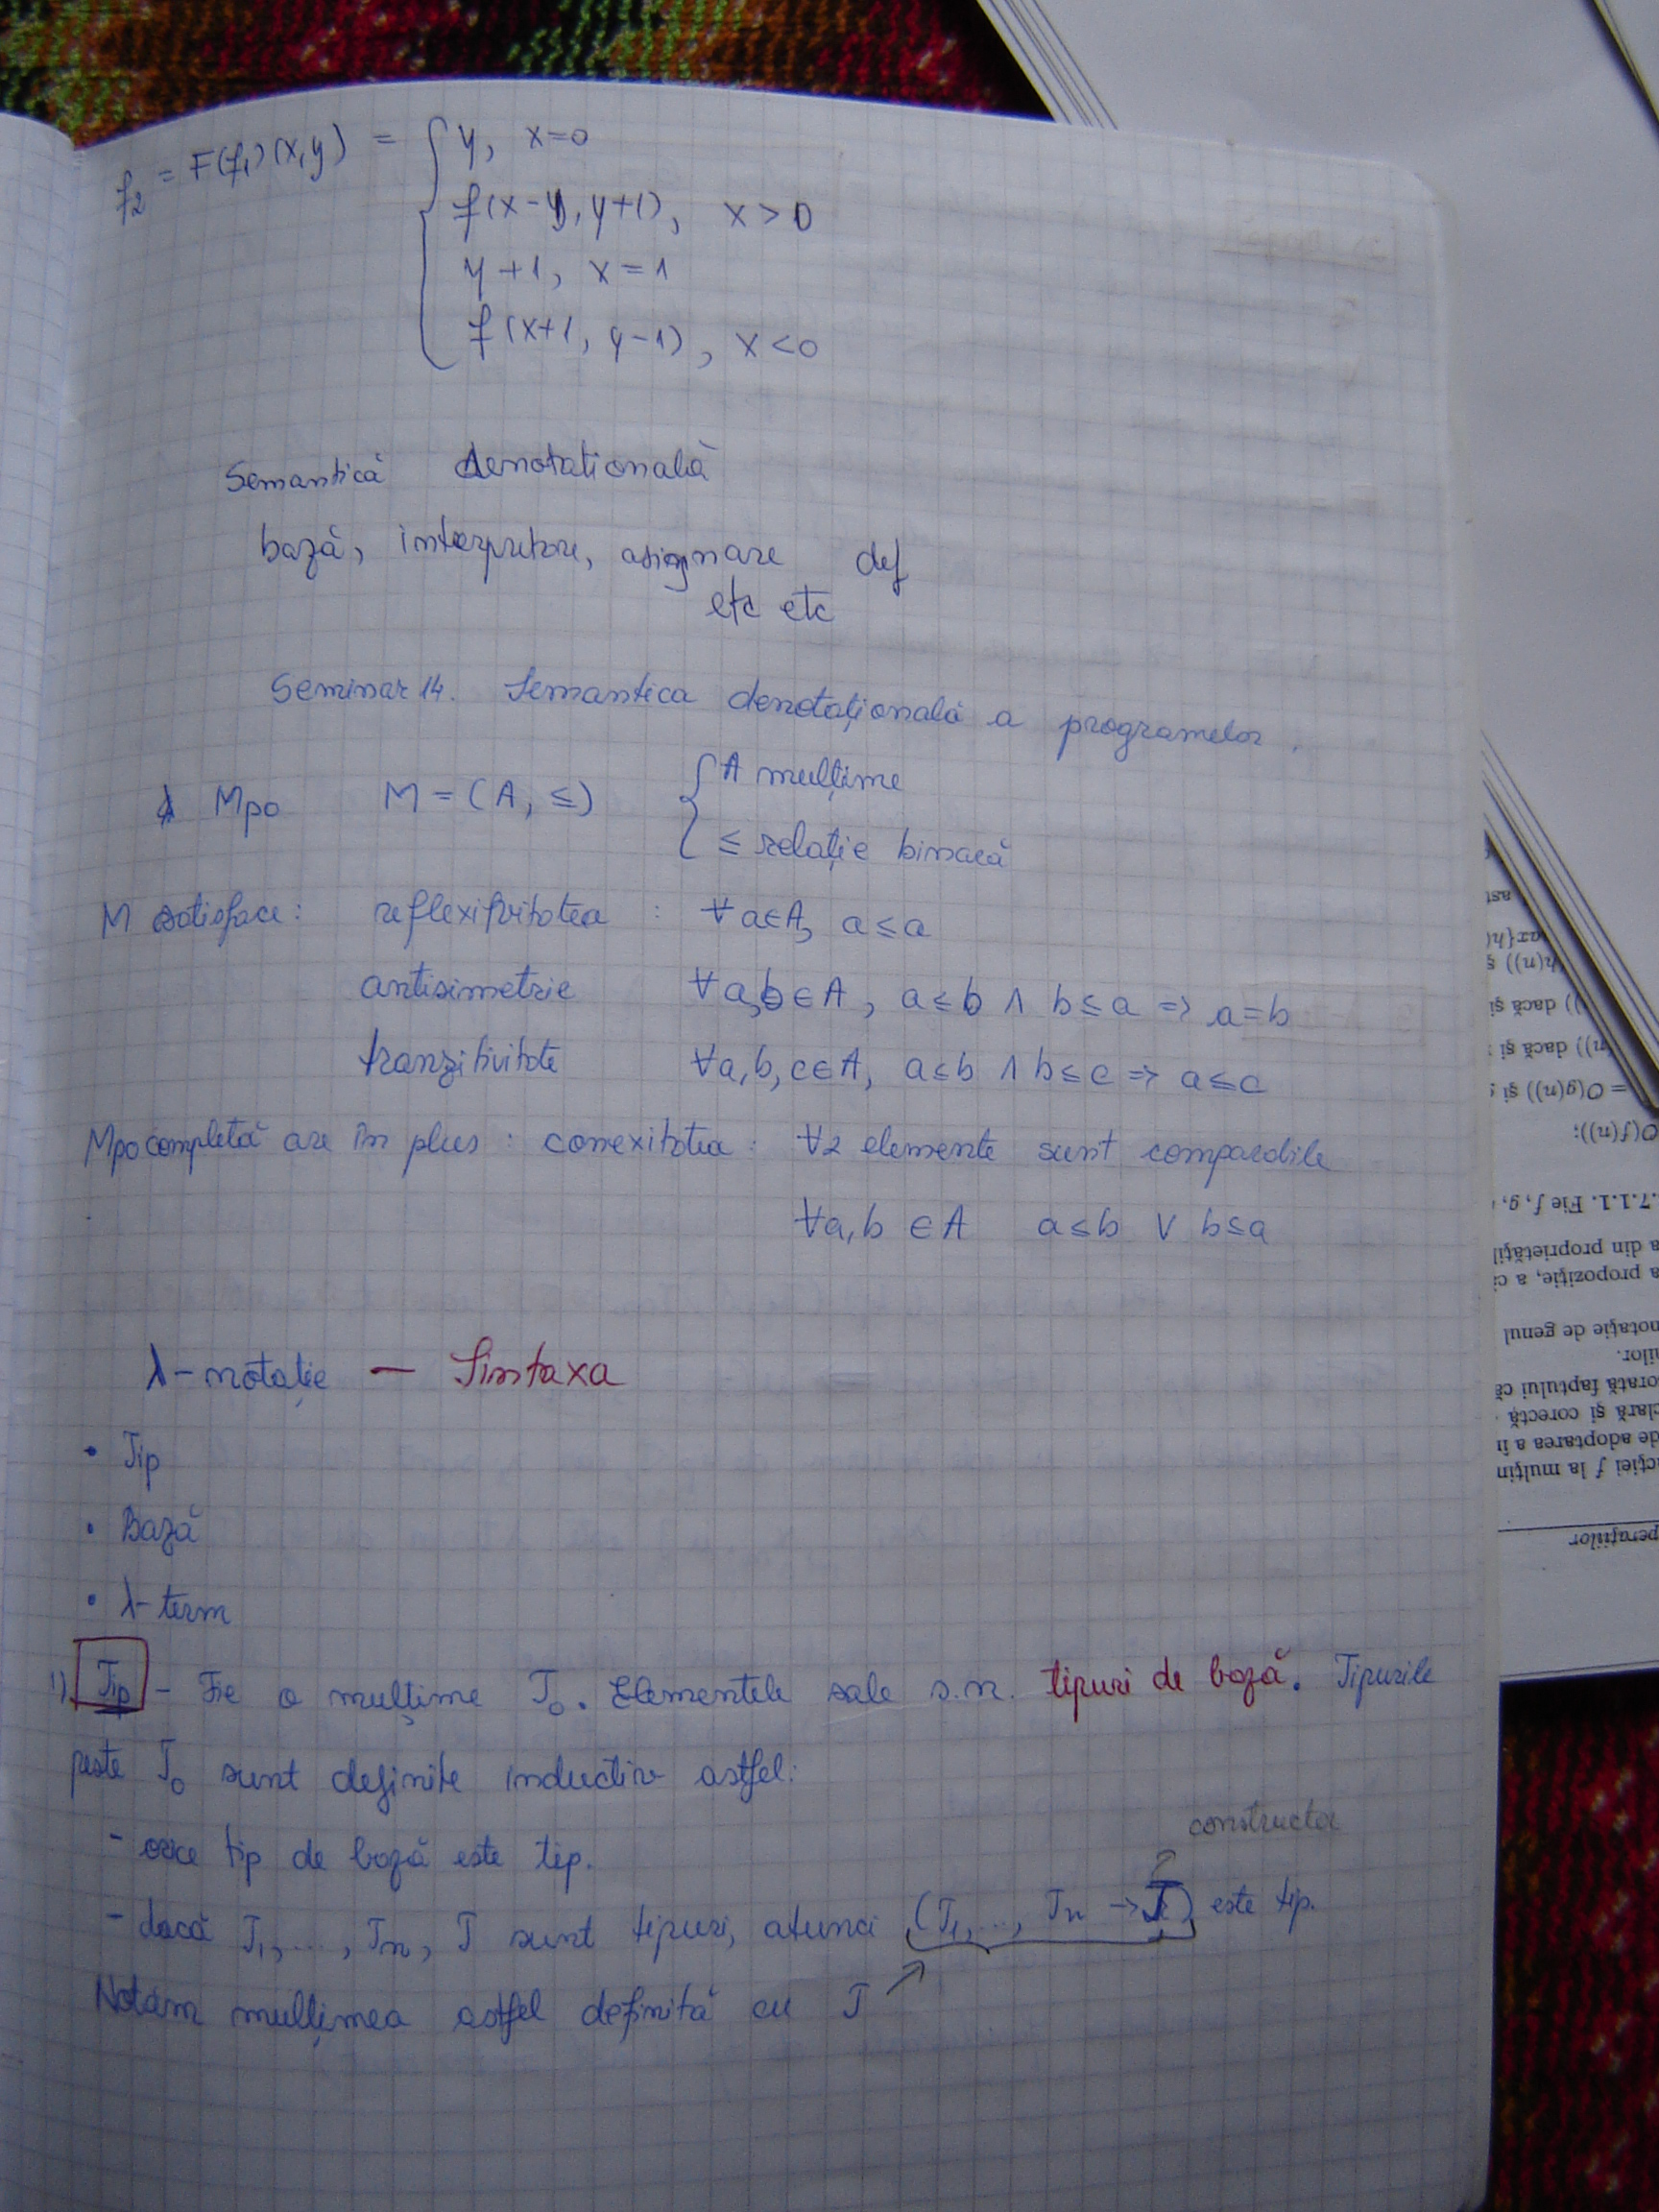 f₂ = F(f₁)(x,y) = { y, x=0
f(x-y, y+1), x>0
y+1, x=1
f(x+1, y-1), x<0
Semantică denotatională
bază, interpretare, asignare def
etc etc
Seminar 14. Semantica denotațională a programelor.
Mpo M = (A, ≤) { A mulțime
≤ relație binară
M satisface: reflexivitatea : ∀a∈A, a≤a
antisimetrie ∀a,b∈A, a≤b ∧ b≤a => a=b
tranzitivitate ∀a,b,c∈A, a≤b ∧ b≤c => a≤c
Mpo completă are în plus: conexitatea: ∀2 elemente sunt comparabile
∀a,b ∈A a≤b ∨ b≤a
λ-notație — Sintaxa
• Tip
• Bază
• λ-term
1) Tip - Fie o mulțime T₀. Elementele sale s.n. tipuri de bază. Tipurile
peste T₀ sunt definite inductiv astfel:
- orice tip de bază este tip.
constructor
- dacă T₁,..., Tₙ, T sunt tipuri, atunci (T₁,..., Tₙ → T) este tip.
Notăm mulțimea astfel definită cu T
ax{h(
(h(n)) ș
)) dacă și
(n)) dacă și
= O(g(n)) și
O(f(n));
.7.1.1. Fie f, g,
a din proprietăţil
a propoziţie, a c
notaţie de genul
nilor.
orată faptului că
clară şi corectă
de adoptarea a
cţiei f la mulţim
peraţiilor